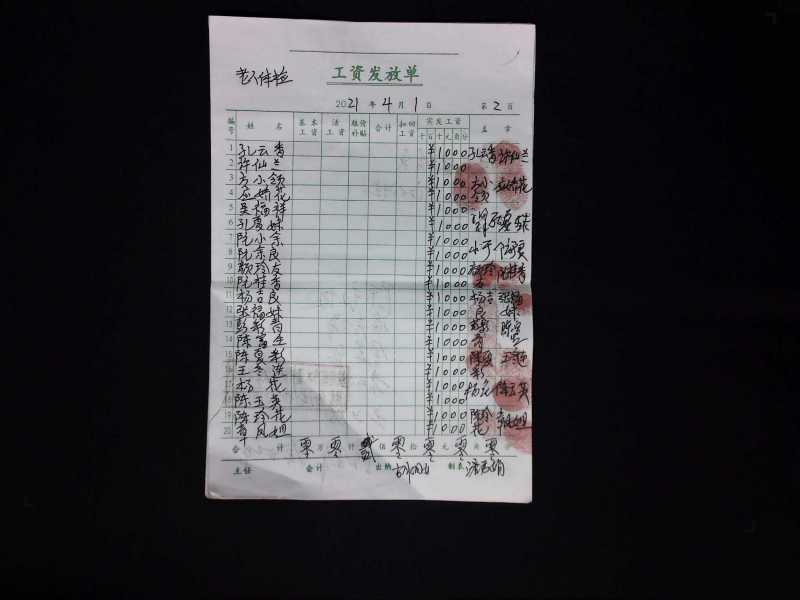 老人体检
工资发放单
2021 年 4 月 1 日 第 2 页
编号 姓名 基本工资 活工资 粮价补贴 合计 扣回工资 实发工资 盖章
千 百 十 元 角 分
1 孔云香 ¥1000 孔云香
2 许仙兰 ¥1000 许仙兰
3 方小领 ¥1000 方小领
4 应娇花 ¥1000 应娇花
5 吴福祥 ¥1000
6 孔夏妹 ¥1000 孔夏妹
7 阮小余 ¥1000
8 阮余良 ¥1000
9 颜玲友 ¥1000 颜玲友
10 阮桂香 ¥1000 阮桂香
11 杨吉良 ¥1000 杨吉良
12 张福妹 ¥1000 张福妹
13 ¥1000
14 陈富生 ¥1000
15 陈夏彩 ¥1000 陈夏彩
16 王冬莲 ¥1000 王冬莲
17 杨花 ¥1000 杨花
18 陈玉英 ¥1000 陈玉英
19 陈玲花 ¥1000 陈玲花
20 章凤妲 ¥1000
合计 零 万 零 仟 贰 佰 零 拾 零 元 零 角 零
主任 会计 出纳 制表